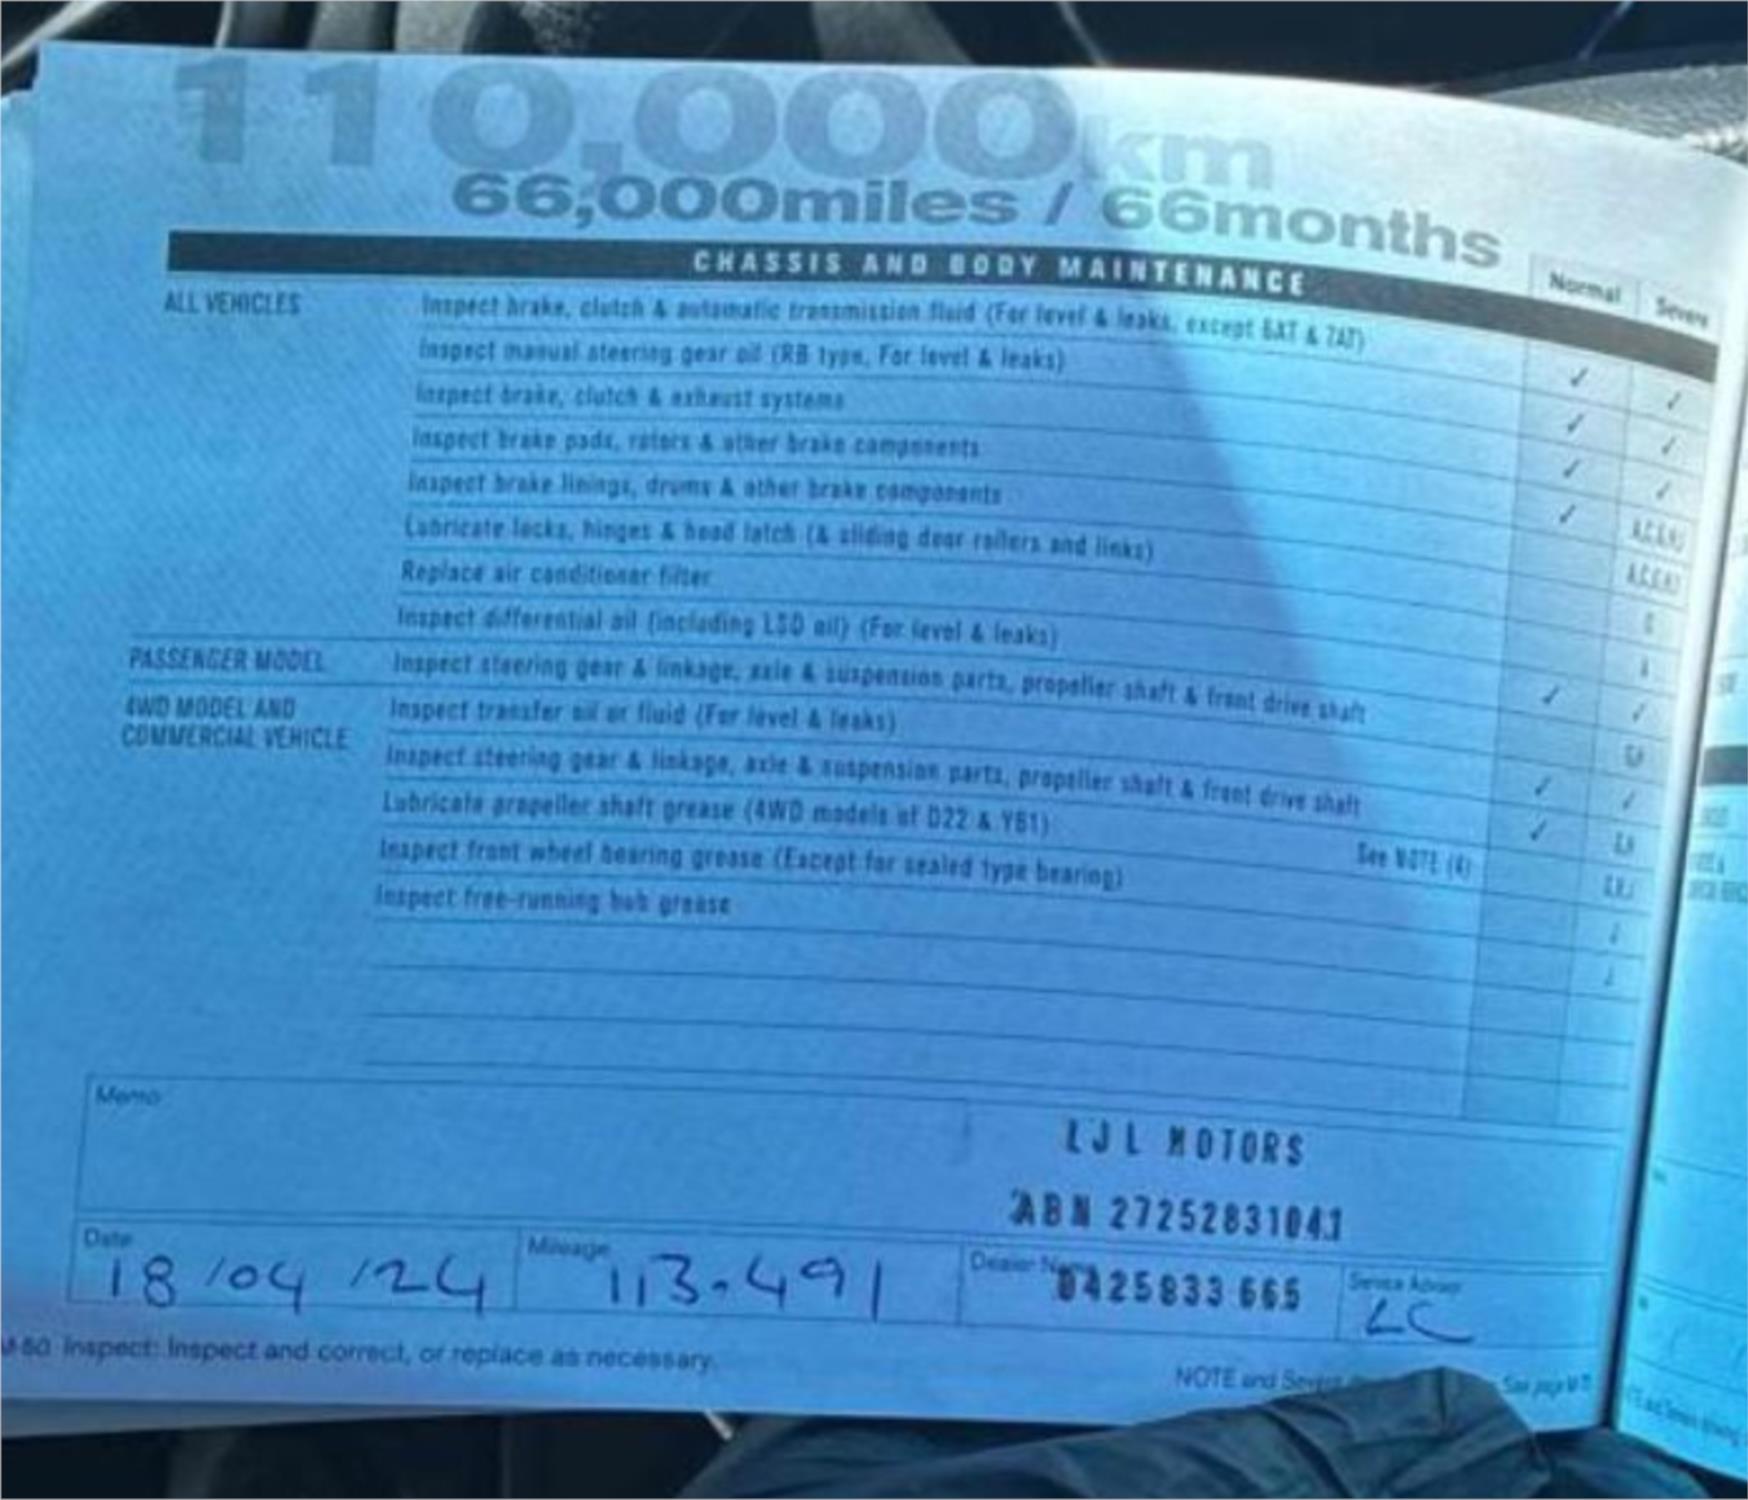 110,000km
66,000miles / 66months
CHASSIS AND BODY MAINTENANCE
Normal
Severe
ALL VEHICLES
Inspect brake, clutch & automatic transmission fluid (For level & leaks, except 6AT & 7AT)
Inspect manual steering gear oil (RB type, For level & leaks)
Inspect brake, clutch & exhaust systems
Inspect brake pads, rotors & other brake components
Inspect brake linings, drums & other brake components
Lubricate locks, hinges & hood latch (& sliding door rollers and links)
Replace air conditioner filter
Inspect differential oil (including LSD oil) (For level & leaks)
PASSENGER MODEL
Inspect steering gear & linkage, axle & suspension parts, propeller shaft & front drive shaft
4WD MODEL AND
COMMERCIAL VEHICLE
Inspect transfer oil or fluid (For level & leaks)
Inspect steering gear & linkage, axle & suspension parts, propeller shaft & front drive shaft
Lubricate propeller shaft grease (4WD models of D22 & Y61)
See NOTE (4)
Inspect front wheel bearing grease (Except for sealed type bearing)
Inspect free-running hub grease
Memo
LJL MOTORS
ABN 27252831041
Date
18/04/24
Mileage
113.491
Dealer
0425833 665
Service Advisor
LC
Inspect: Inspect and correct, or replace as necessary.
NOTE and
See page